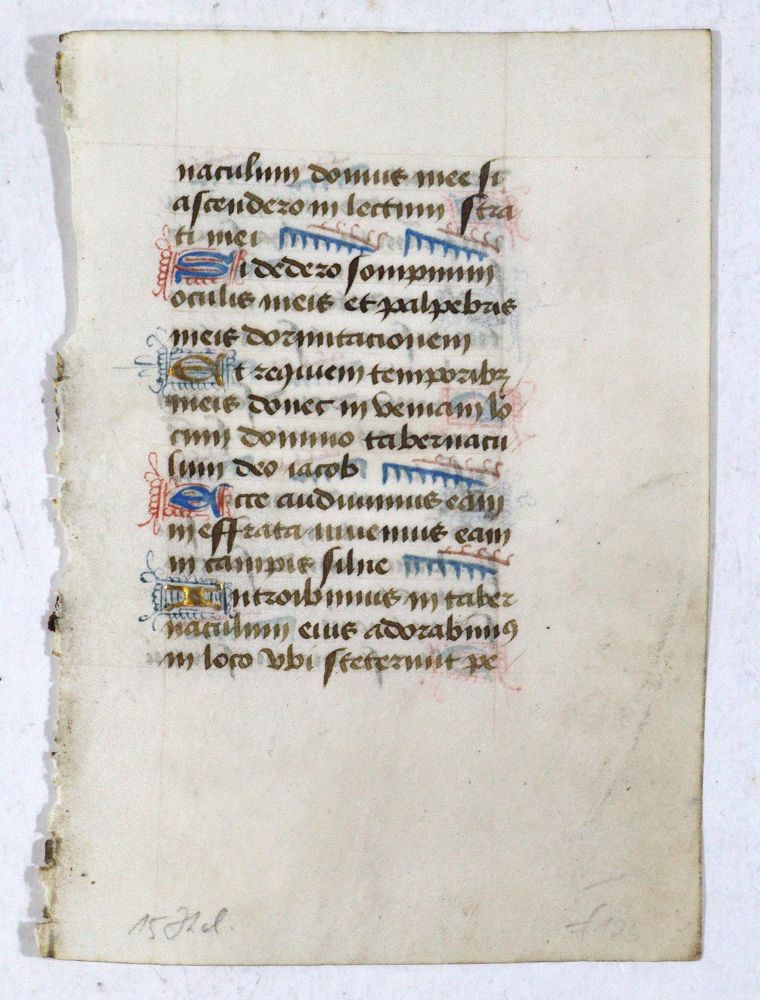 naculum domus mee si
ascendero in lectum stra
ti mei
Si dedero sompnum
oculis meis et palpebris
meis dormitacionem
Et requiem temporibꝫ
meis donec in veniam lo
cum domino tabernacu
lum deo iacob
Ecce audiuimus eam
in effrata inuenius eam
in campis silue
Introibimus in taber
naculum eius adorabimꝰ
in loco vbi steterunt pe